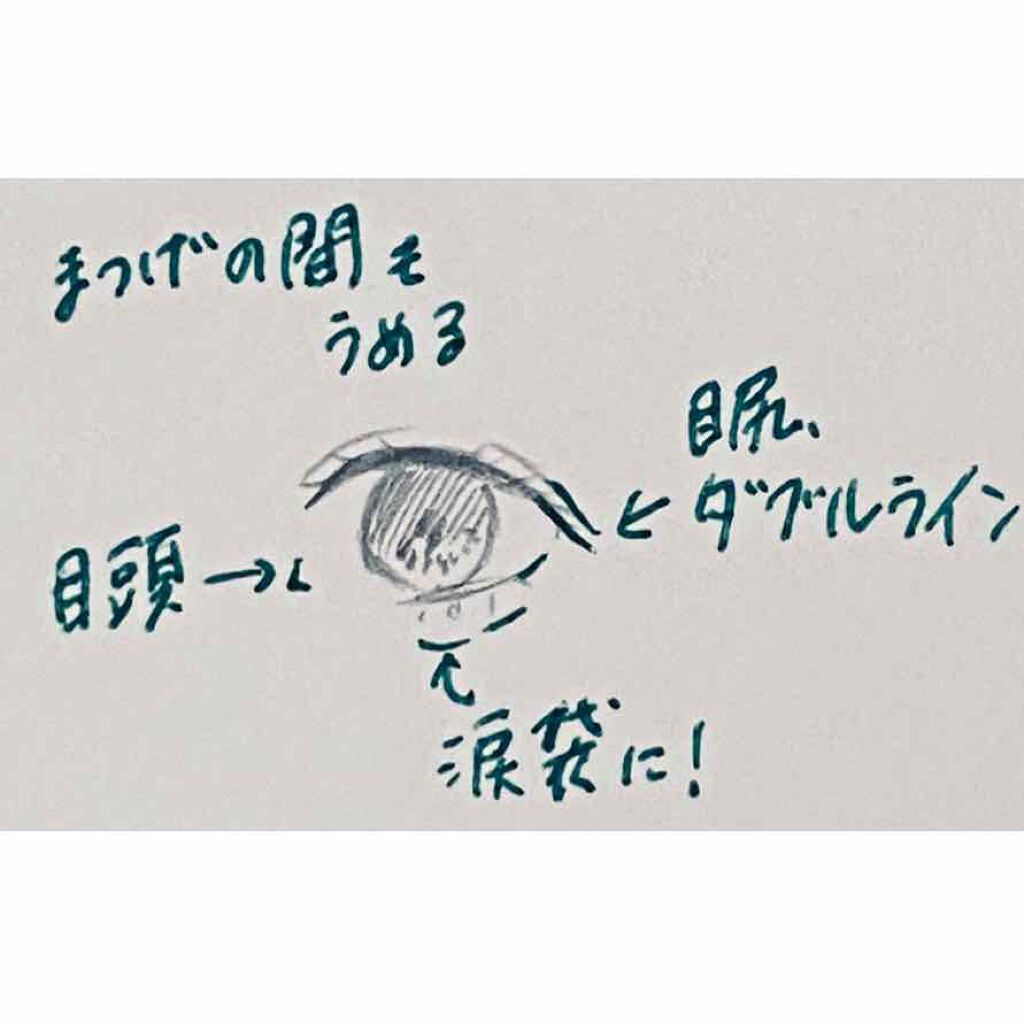 まつげの間も
うめる
目尻、
ダブルライン
目頭
涙袋に!